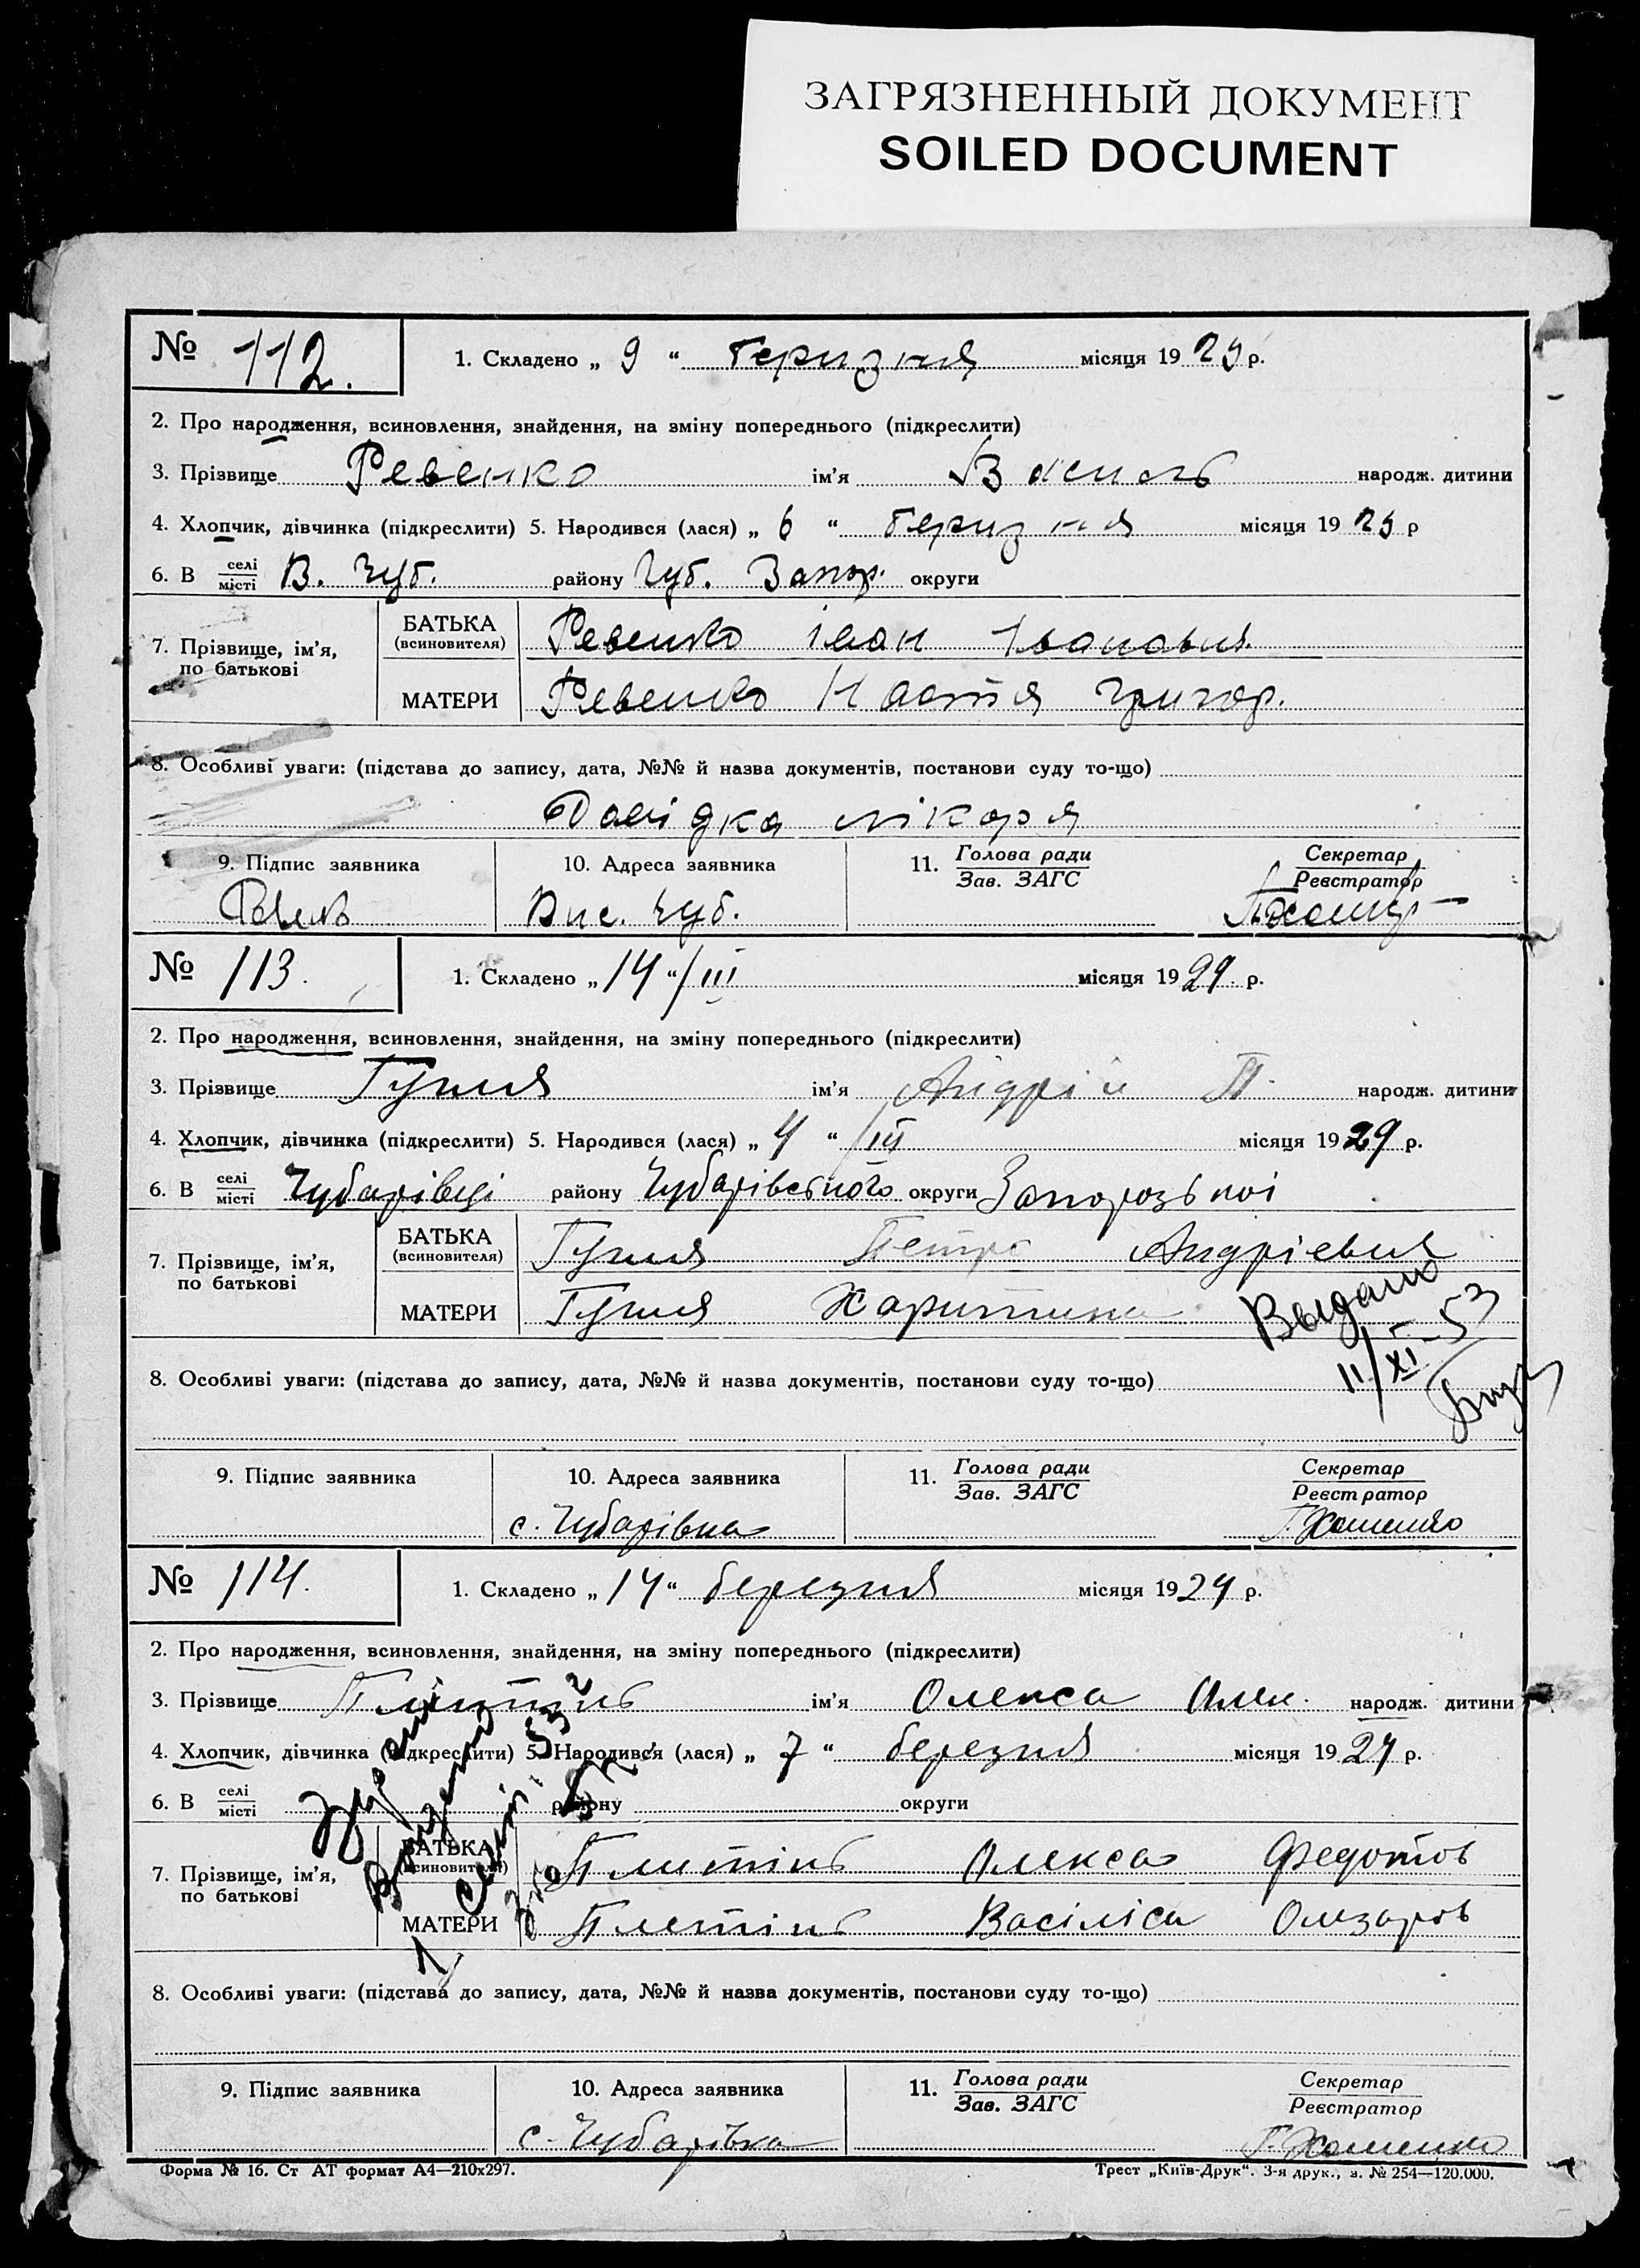 ЗАГРЯЗНЕННЫЙ ДОКУМЕНТ
SOILED DOCUMENT
№ 112. 1. Складено „ 9 “ березня місяця 19 29 р.
2. Про народження, всиновлення, знайдення, на зміну попереднього (підкреслити)
3. Прізвище Ревенко ім’я Василь народж. дитини
4. Хлопчик, дівчинка (підкреслити) 5. Народився (лася) „ 6 “ березня місяця 19 29 р
6. В селі місті В. Чуб. району Чуб. Запор. округи
7. Прізвище, ім’я, по батькові
БАТЬКА (всиновителя) Ревенко Іван Іванович
МАТЕРИ Ревенко Настя Григор.
8. Особливі уваги: (підстава до запису, дата, №№ й назва документів, постанови суду то-що)
Довідка лікаря
9. Підпис заявника 10. Адреса заявника 11. Голова ради Зав. ЗАГС Секретар Реєстратор
Вис. Чуб.
№ 113. 1. Складено „ 14 “ / III місяця 19 29. р.
2. Про народження, всиновлення, знайдення, на зміну попереднього (підкреслити)
3. Прізвище ім’я Андрій П. народж. дитини
4. Хлопчик, дівчинка (підкреслити) 5. Народився (лася) „ 4 “ / III місяця 19 29 р.
6. В селі місті Чубарівці району Чубарівського округи Запорозької
7. Прізвище, ім’я, по батькові
БАТЬКА (всиновителя) Петро Андрієвич
МАТЕРИ Харитина
Выдано
11/XI-53
8. Особливі уваги: (підстава до запису, дата, №№ й назва документів, постанови суду то-що)
9. Підпис заявника 10. Адреса заявника 11. Голова ради Зав. ЗАГС Секретар Реєстратор
с. Чубарівка Г. Хоменко
№ 114. 1. Складено „ 14 “ березня місяця 19 29 р.
2. Про народження, всиновлення, знайдення, на зміну попереднього (підкреслити)
3. Прізвище ім’я Олекса Олек. народж. дитини
4. Хлопчик, дівчинка (підкреслити) 5. Народився (лася) „ 7 “ березня місяця 19 29 р.
6. В селі місті району округи
7. Прізвище, ім’я, по батькові
БАТЬКА (всиновителя) Олекса Федотов
МАТЕРИ Васіліса
8. Особливі уваги: (підстава до запису, дата, №№ й назва документів, постанови суду то-що)
9. Підпис заявника 10. Адреса заявника 11. Голова ради Зав. ЗАГС Секретар Реєстратор
с. Чубарівка Г. Хоменко
Форма № 16. Ст АТ формат А4—210х297. Трест „Київ-Друк“. 3-я друк., з. № 254—120.000.